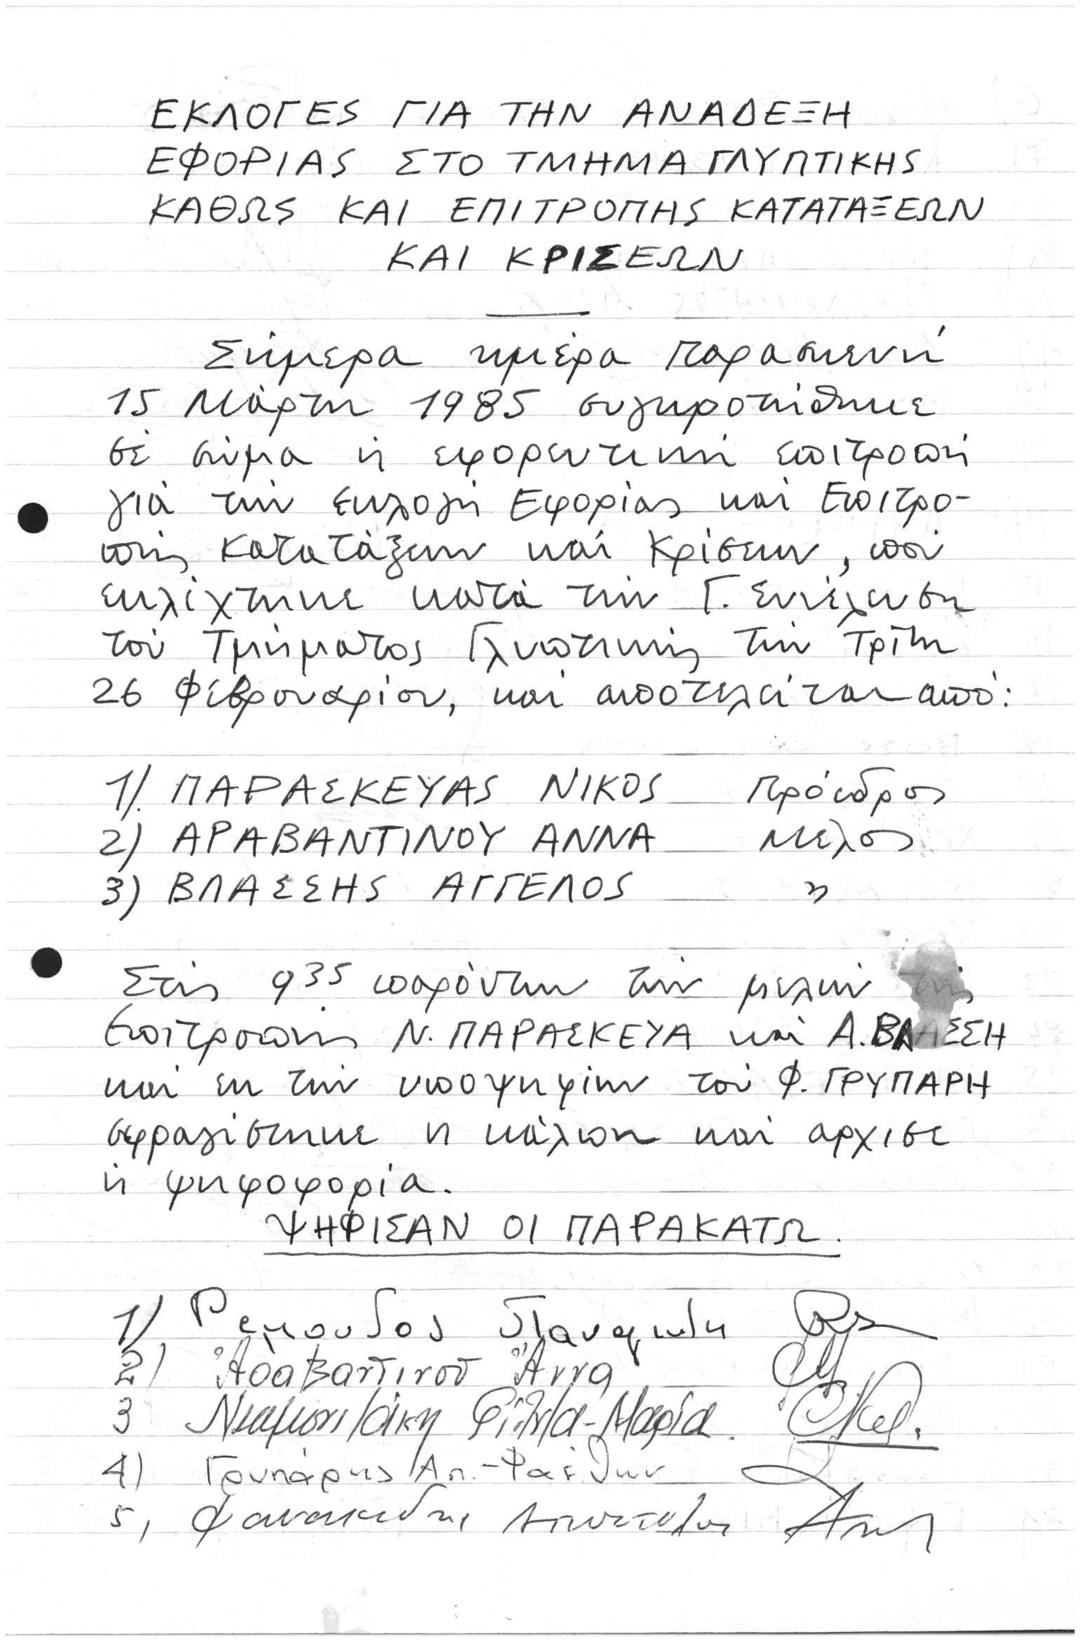 ΕΚΛΟΓΕΣ ΓΙΑ ΤΗΝ ΑΝΑΔΕΞΗ
ΕΦΟΡΙΑΣ ΣΤΟ ΤΜΗΜΑ ΓΛΥΠΤΙΚΗΣ
ΚΑΘΩΣ ΚΑΙ ΕΠΙΤΡΟΠΗΣ ΚΑΤΑΤΑΞΕΩΝ
ΚΑΙ ΚΡΙΣΕΩΝ
Σήμερα ημέρα Παρασκευή
15 Μάρτη 1985 συγκροτήθηκε
σέ σώμα ή εφορευτική επιτροπή
γιά τήν εκλογή Εφορίας καί Επιτρο-
πής Κατατάξεων καί Κρίσεων, πού
εκλέχτηκε κατά τήν Γ. Συνέλευση
τού Τμήματος Γλυπτικής τήν Τρίτη
26 Φεβρουαρίου, καί αποτελείται από:
1) ΠΑΡΑΣΚΕΥΑΣ ΝΙΚΟΣ Πρόεδρος
2) ΑΡΑΒΑΝΤΙΝΟΥ ΑΝΝΑ Μέλος
3) ΒΛΑΣΣΗΣ ΑΓΓΕΛΟΣ "
Στίς 9 35 παρόντων τών μελών τής
Επιτροπής Ν. ΠΑΡΑΣΚΕΥΑ καί Α. ΒΛΑΣΣΗ
καί εκ τών υποψηφίων τού Φ. ΓΡΥΠΑΡΗ
σφραγίστηκε η κάλπη καί αρχισε
ή ψηφοφορία.
ΨΗΦΙΣΑΝ ΟΙ ΠΑΡΑΚΑΤΩ.
1) Ρεμουδος Παναγιωτης
2) Αραβαντινού Άννα
3 Φιλιω-Μαρία.
4) Γρυπάρης Απ.-Φαέθων
5, Φανακιδης Αποστολος